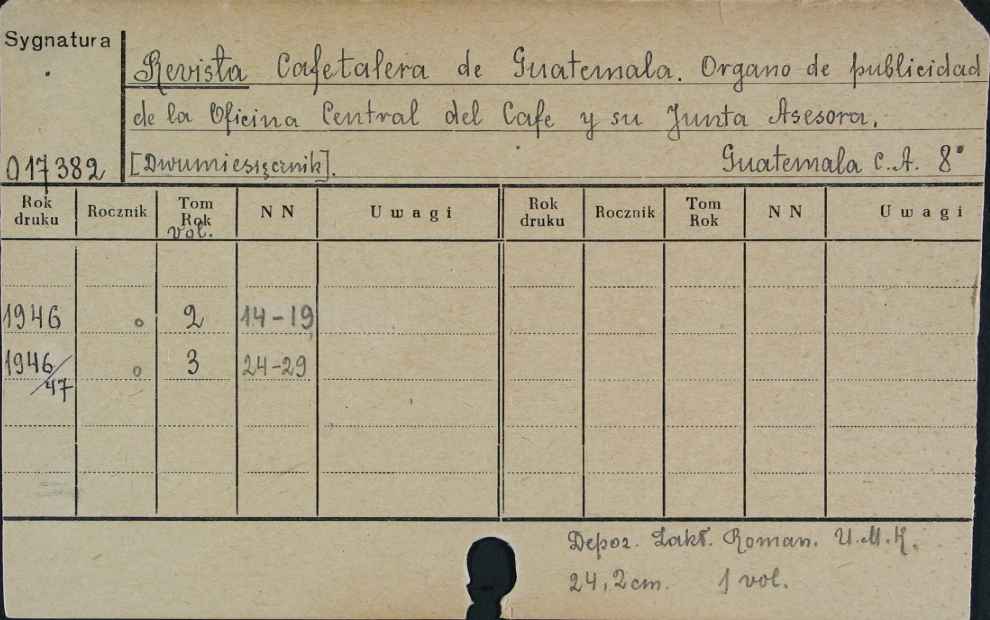 Sygnatura
Revista Cafetalera de Guatemala. Organo de publicidad
de la Oficina Central del Cafe y su Junta Asesora.
017382 [Dwumiesięcznik]. Guatemala C.A. 8°
Rok druku Rocznik Tom Rok vol. NN Uwagi Rok druku Rocznik Tom Rok NN Uwagi
1946 o 2 14-19
1946/47 o 3 24-29
Depoz. Zakł. Roman. U.M.K.
24,2cm. 1 vol.